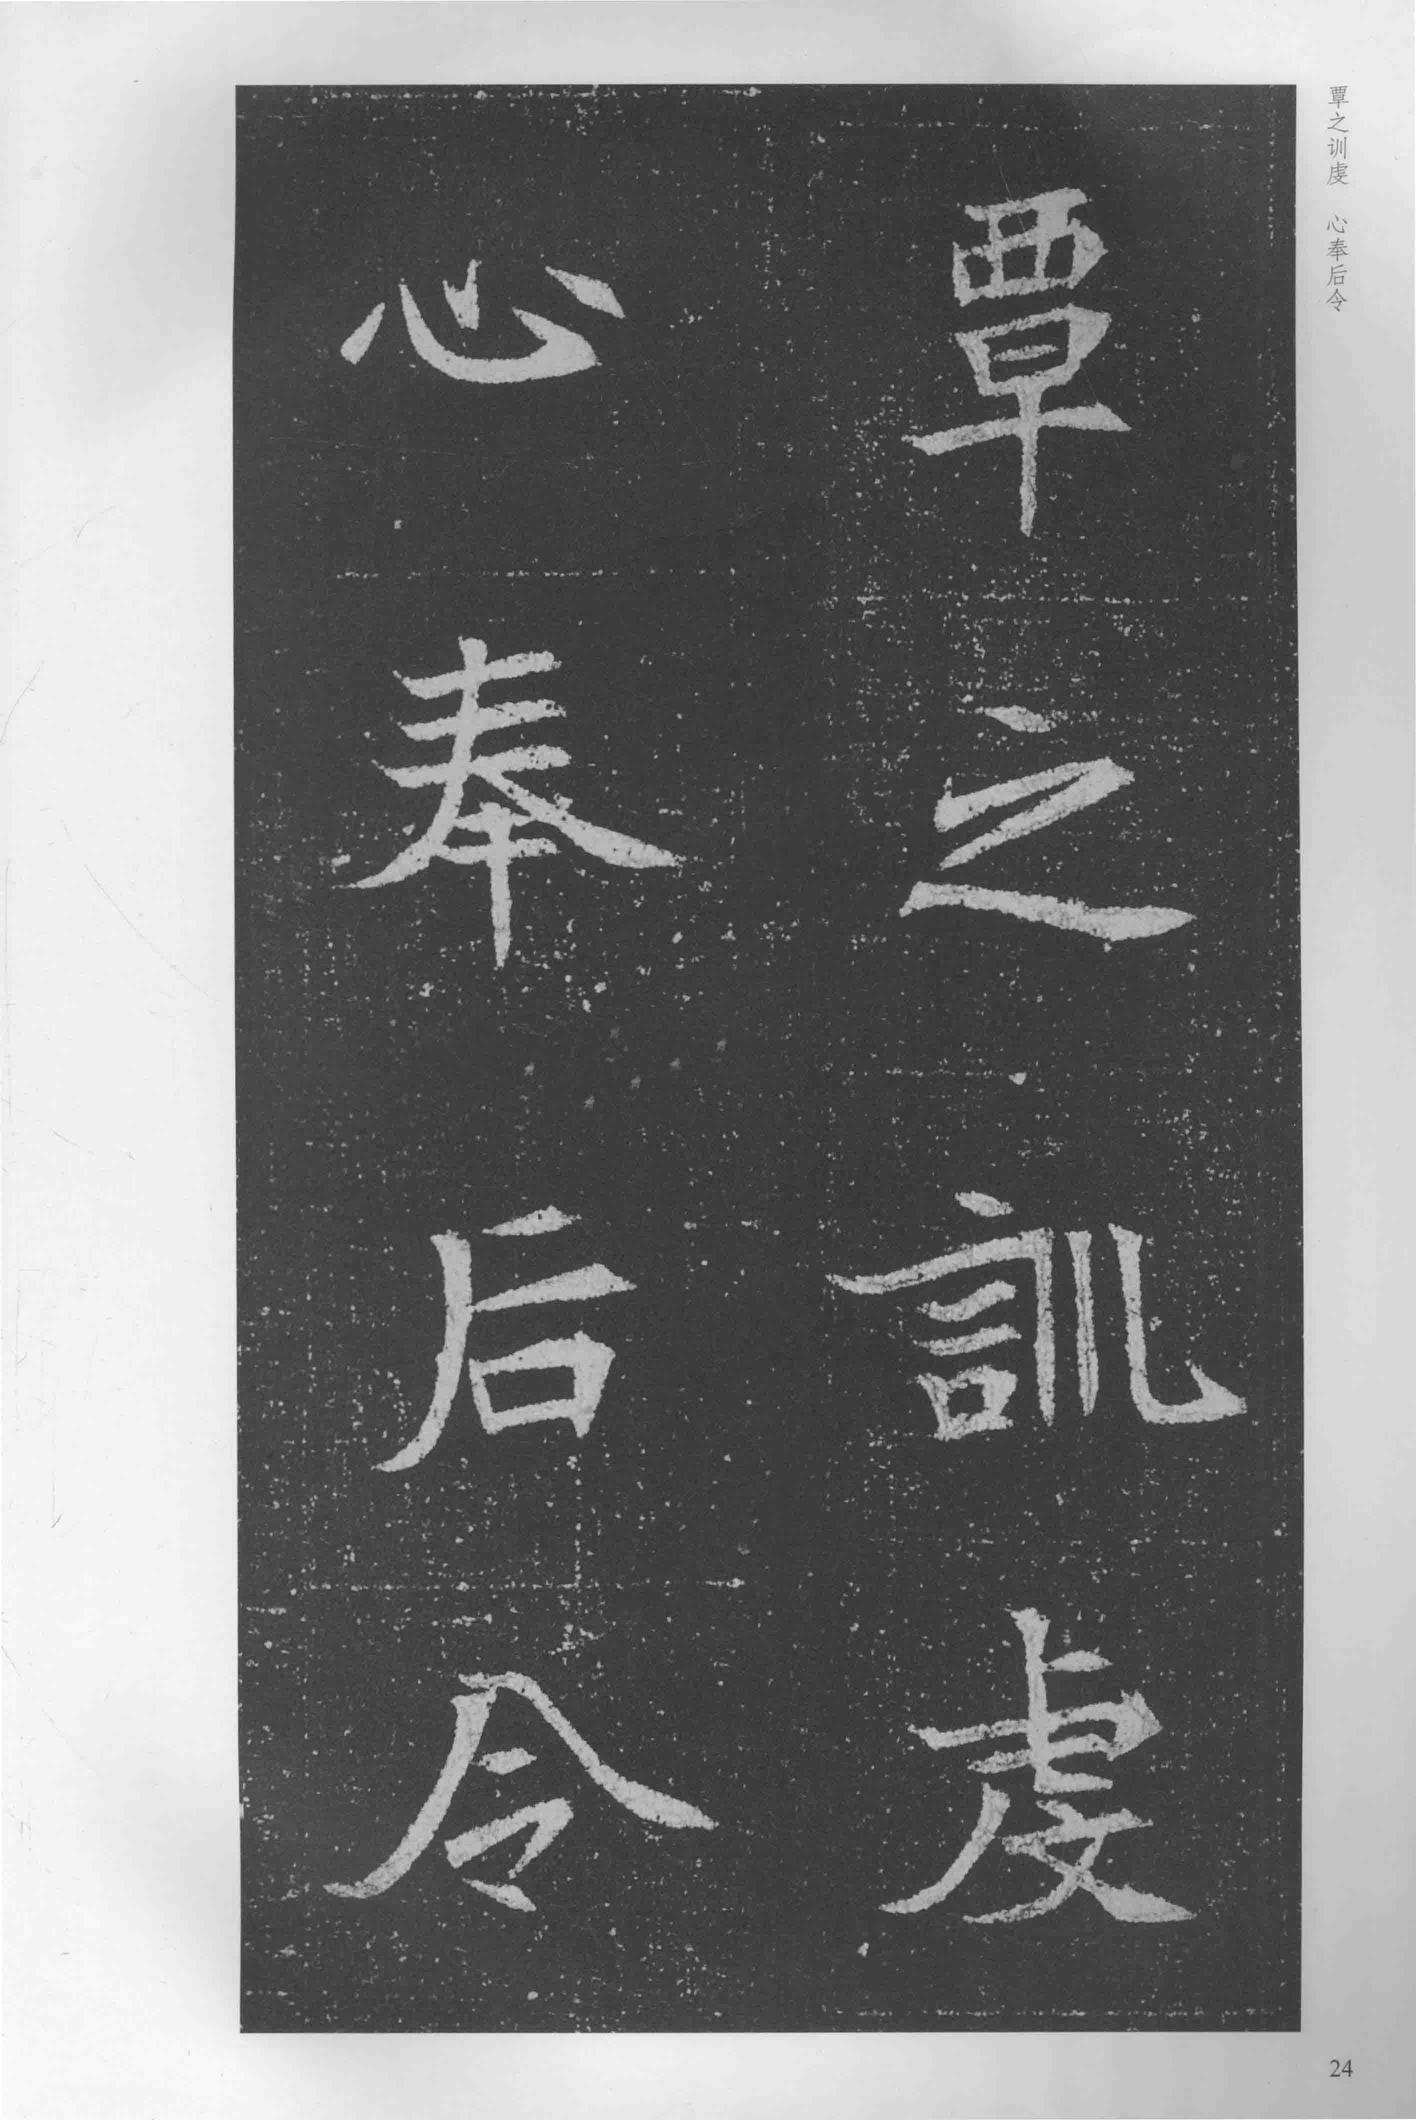 覃之訓虔
心奉后令
覃之训虔 心奉后令
24